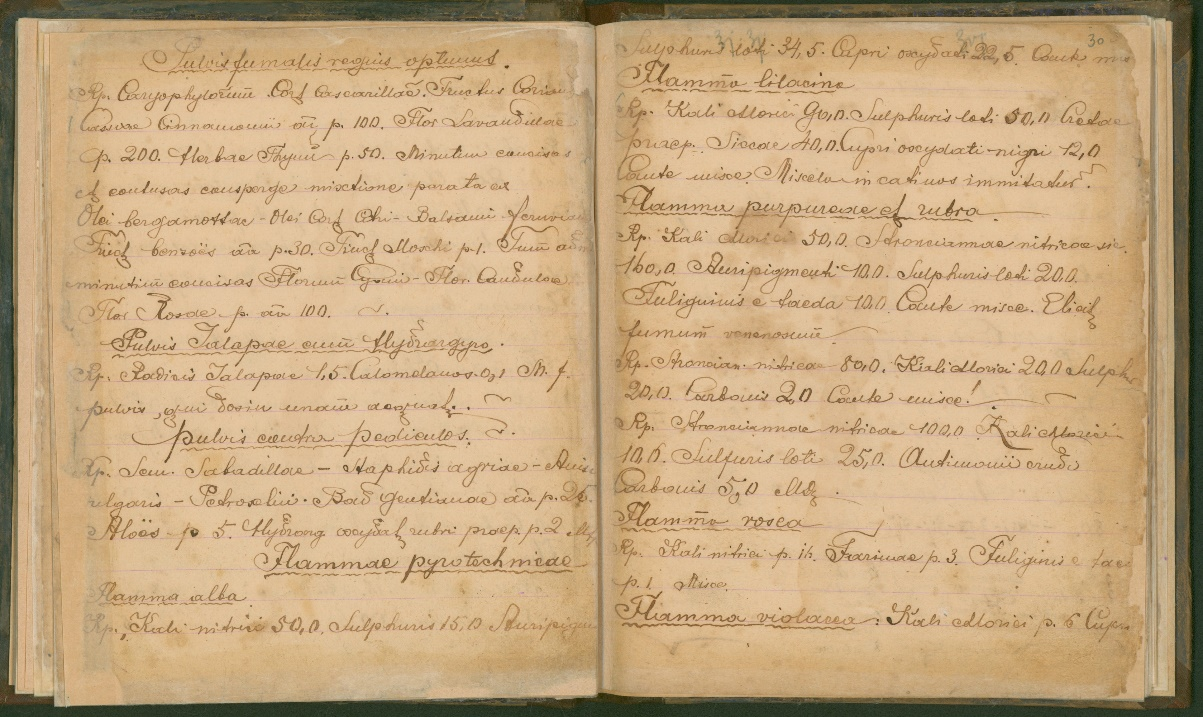 Pulvis fumalis regius optimus.
Rp. Caryophylorum. Cort Cascarillae. Fructus Corian
Cassiae Cinnamomi aā p. 100. Flor Lavandulae
p. 200. Herbae Thymi p. 50. Minutim concisas
et contusas consperge mixtione parata ex
Olei bergamottae - Olei Cort Citri - Balsami Peruvia
Tinct benzoës aā p. 30. Tinct Moschi p. 1. Tum adm
minutim concisas Florum Cyani - Flor Calendulae
Flor Rosae p. aā 100.
Pulvis Jalapae cum Hydrargyro.
Rp. Radicis Jalapae 1,5. Calomelanos 0,1 M. f.
pulvis, qui dosin unam aequat.
pulvis contra pediculos.
Rp. Sem. Sabadillae - Staphidis agriae - Anisi
vulgaris - Petroselini. Rad gentianae aā p. 25.
Aloës p 5. Hydrarg oxydat rubri praep. p. 2 M
Flammae pyrotechnicae
Flamma alba
Rp. Kali nitrici 50,0. Sulphuris 15,0 Auripigm
30
Sulphuris loti 34,5. Cupri oxydati 22,5. Caute mi
Flamma lilacina
Rp. Kali chlorici 90,0. Sulphuris loti 50,0 Cretae
praep. Siccae 40,0. Cupri oxydati nigri 12,0
Caute misce. Miscela in catinos immitatur.
Flamma purpureae et rubra
Rp. Kali chlorici 50,0. Stronciannae nitricae sic.
160,0 Auripigmenti 10,0. Sulphuris loti 200.
Fuliginis e taeda 10,0 Caute misce. Elicit
fumum venenosum
Rp. Stroncian. nitricae 80,0. Kali chlorici 20,0 Sulph
20,0. Carbonis 2,0 Caute misce!
Rp. Stronciannae nitricae 100,0. Kali chlorici
10,0. Sulfuris loti 25,0. Antimonii crudi
Carbonis 5,0 MD
Flamma rosea
Rp. Kali nitrici p. 16. Farinae p. 3. Fuliginis e tae
p. 1. Misce.
Flamma violacea: Kali chlorici p. 6 Cupri